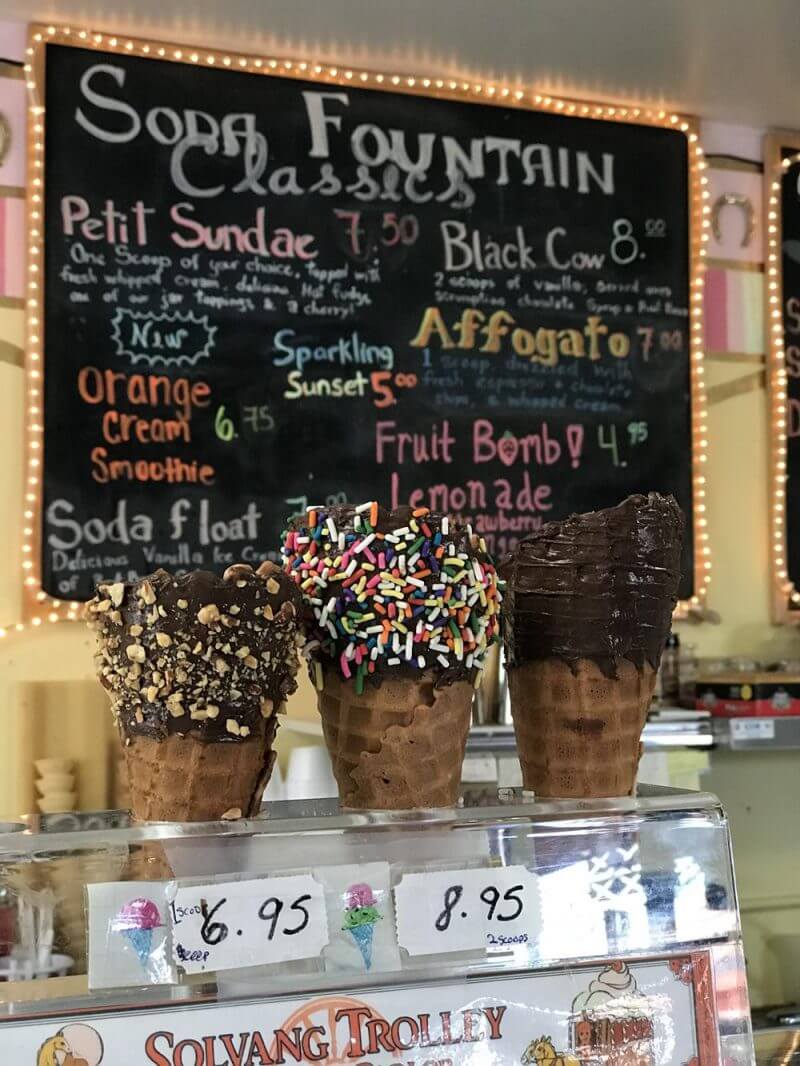 Soda Fountain
Classics
Petit Sundae 7.50
One Scoop of your choice, topped with
fresh whipped cream, delicious Hot fudge
one of our jar toppings & a cherry!
Black Cow 8.00
2 scoops of vanilla,
scrumptious chocolate Syrup &
New
Orange
Cream 6.75
Smoothie
Sparkling
Sunset 5.00
Affogato 7.00
1 scoop, drizzled with
fresh espresso + chocolate
chips, & whipped cream
Fruit Bomb! 4.95
Lemonade
Soda float
Delicious Vanilla Ice Cream
of
1 scoop 6.95
8.95
2 scoops
Solvang Trolley